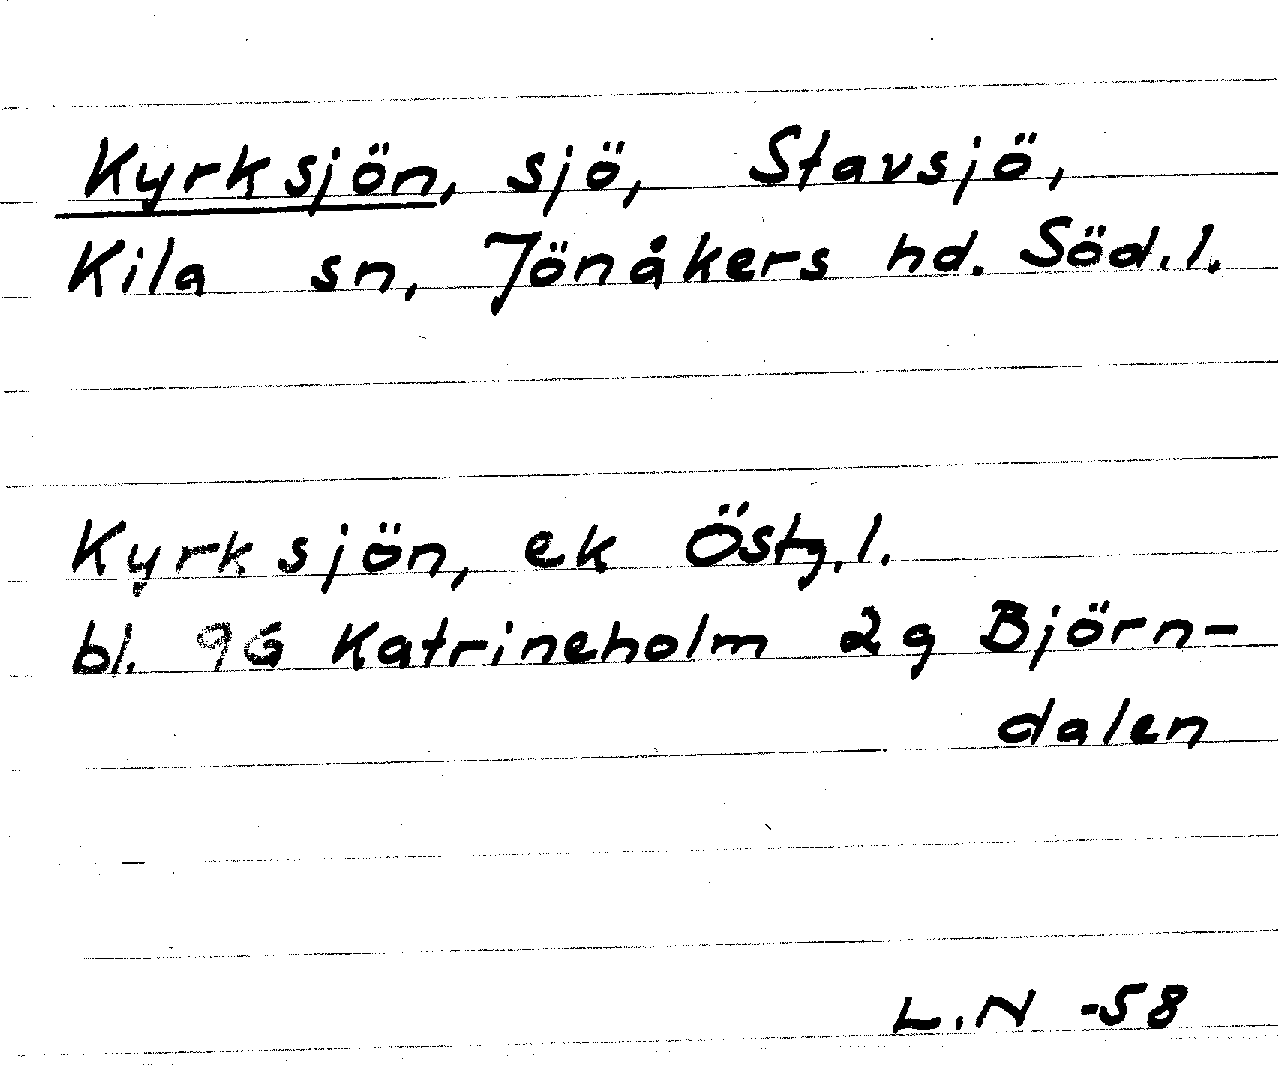 Kyrksjön, sjö, Stavsjö,
Kila sn, Jönåkers hd. Söd.l.
Kyrksjön, ek Östg.l.
bl. 96 Katrineholm 2g Björn-
dalen
L.N -58